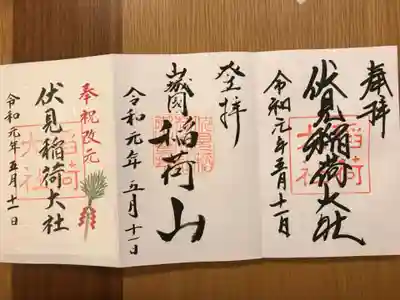 奉拝
伏見稲荷大社
令和元年五月十一日
登拝
稲荷山
令和元年五月十一日
奉祝改元
伏見稲荷大社
令和元年五月十一日
稲荷
大社